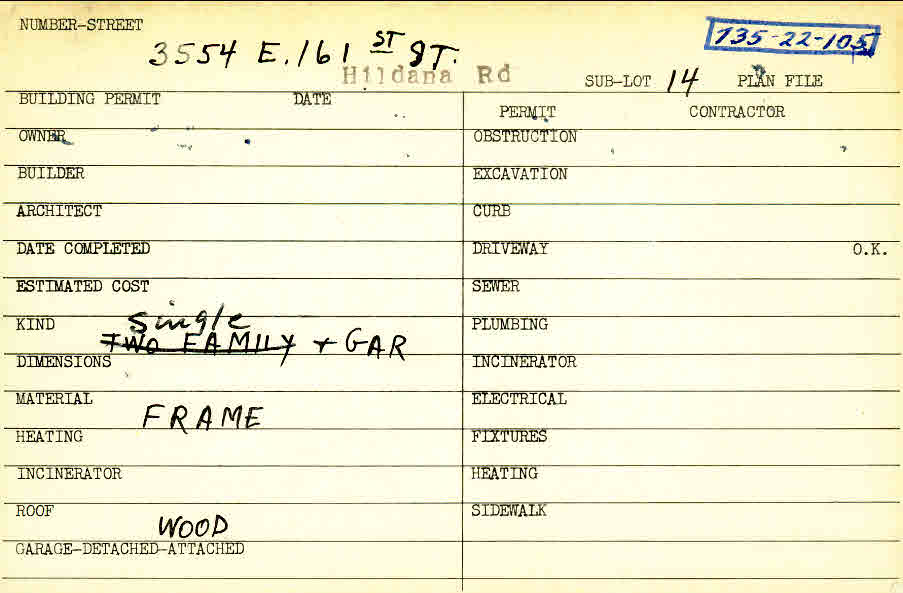 NUMBER-STREET
3554 E. 161 ST ST.
735-22-105
Hildana Rd
SUB-LOT 14 PLAN FILE
BUILDING PERMIT DATE
PERMIT CONTRACTOR
OWNER
OBSTRUCTION
BUILDER
EXCAVATION
ARCHITECT
CURB
DATE COMPLETED
DRIVEWAY O.K.
ESTIMATED COST
SEWER
KIND single
TWO FAMILY + GAR
PLUMBING
DIMENSIONS
INCINERATOR
MATERIAL FRAME
ELECTRICAL
HEATING
FIXTURES
INCINERATOR
HEATING
ROOF WOOD
SIDEWALK
GARAGE-DETACHED-ATTACHED